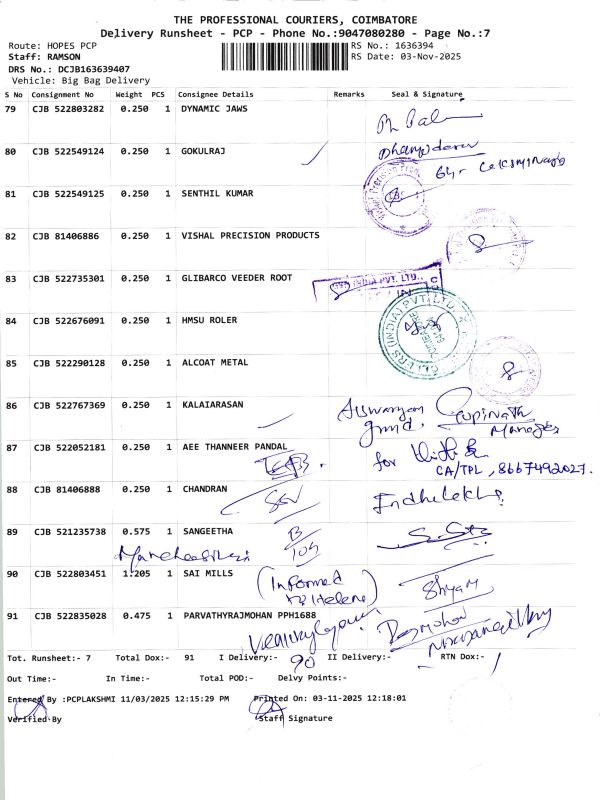 THE PROFESSIONAL COURIERS, COIMBATORE
Delivery Runsheet - PCP - Phone No.:9047080280 - Page No.:7
Route: HOPES PCP
RS No.: 1636394
Staff: RAMSON
RS Date: 03-Nov-2025
DRS No.: DCJB163639407
Vehicle: Big Bag Delivery
S No Consignment No Weight PCS Consignee Details Remarks Seal & Signature
79 CJB 522803282 0.250 1 DYNAMIC JAWS
80 CJB 522549124 0.250 1 GOKULRAJ
81 CJB 522549125 0.250 1 SENTHIL KUMAR
82 CJB 81406886 0.250 1 VISHAL PRECISION PRODUCTS
83 CJB 522735301 0.250 1 GLIBARCO VEEDER ROOT
84 CJB 522676091 0.250 1 HMSU ROLER
85 CJB 522290128 0.250 1 ALCOAT METAL
86 CJB 522767369 0.250 1 KALAIARASAN
Gopinath
Manager
87 CJB 522052181 0.250 1 AEE THANNEER PANDAL
for
CA/TPL, 8667492027.
88 CJB 81406888 0.250 1 CHANDRAN
SSV
89 CJB 521235738 0.575 1 SANGEETHA
B/105
90 CJB 522803451 1.205 1 SAI MILLS
(Informed to Helene)
Shyam
91 CJB 522835028 0.475 1 PARVATHYRAJMOHAN PPH1688
Tot. Runsheet:- 7 Total Dox:- 91 I Delivery:- 90 II Delivery:- RTN Dox:- 1
Out Time:- In Time:- Total POD:- Delvy Points:-
Entered By :PCPLAKSHMI 11/03/2025 12:15:29 PM Printed On: 03-11-2025 12:18:01
Verified By Staff Signature